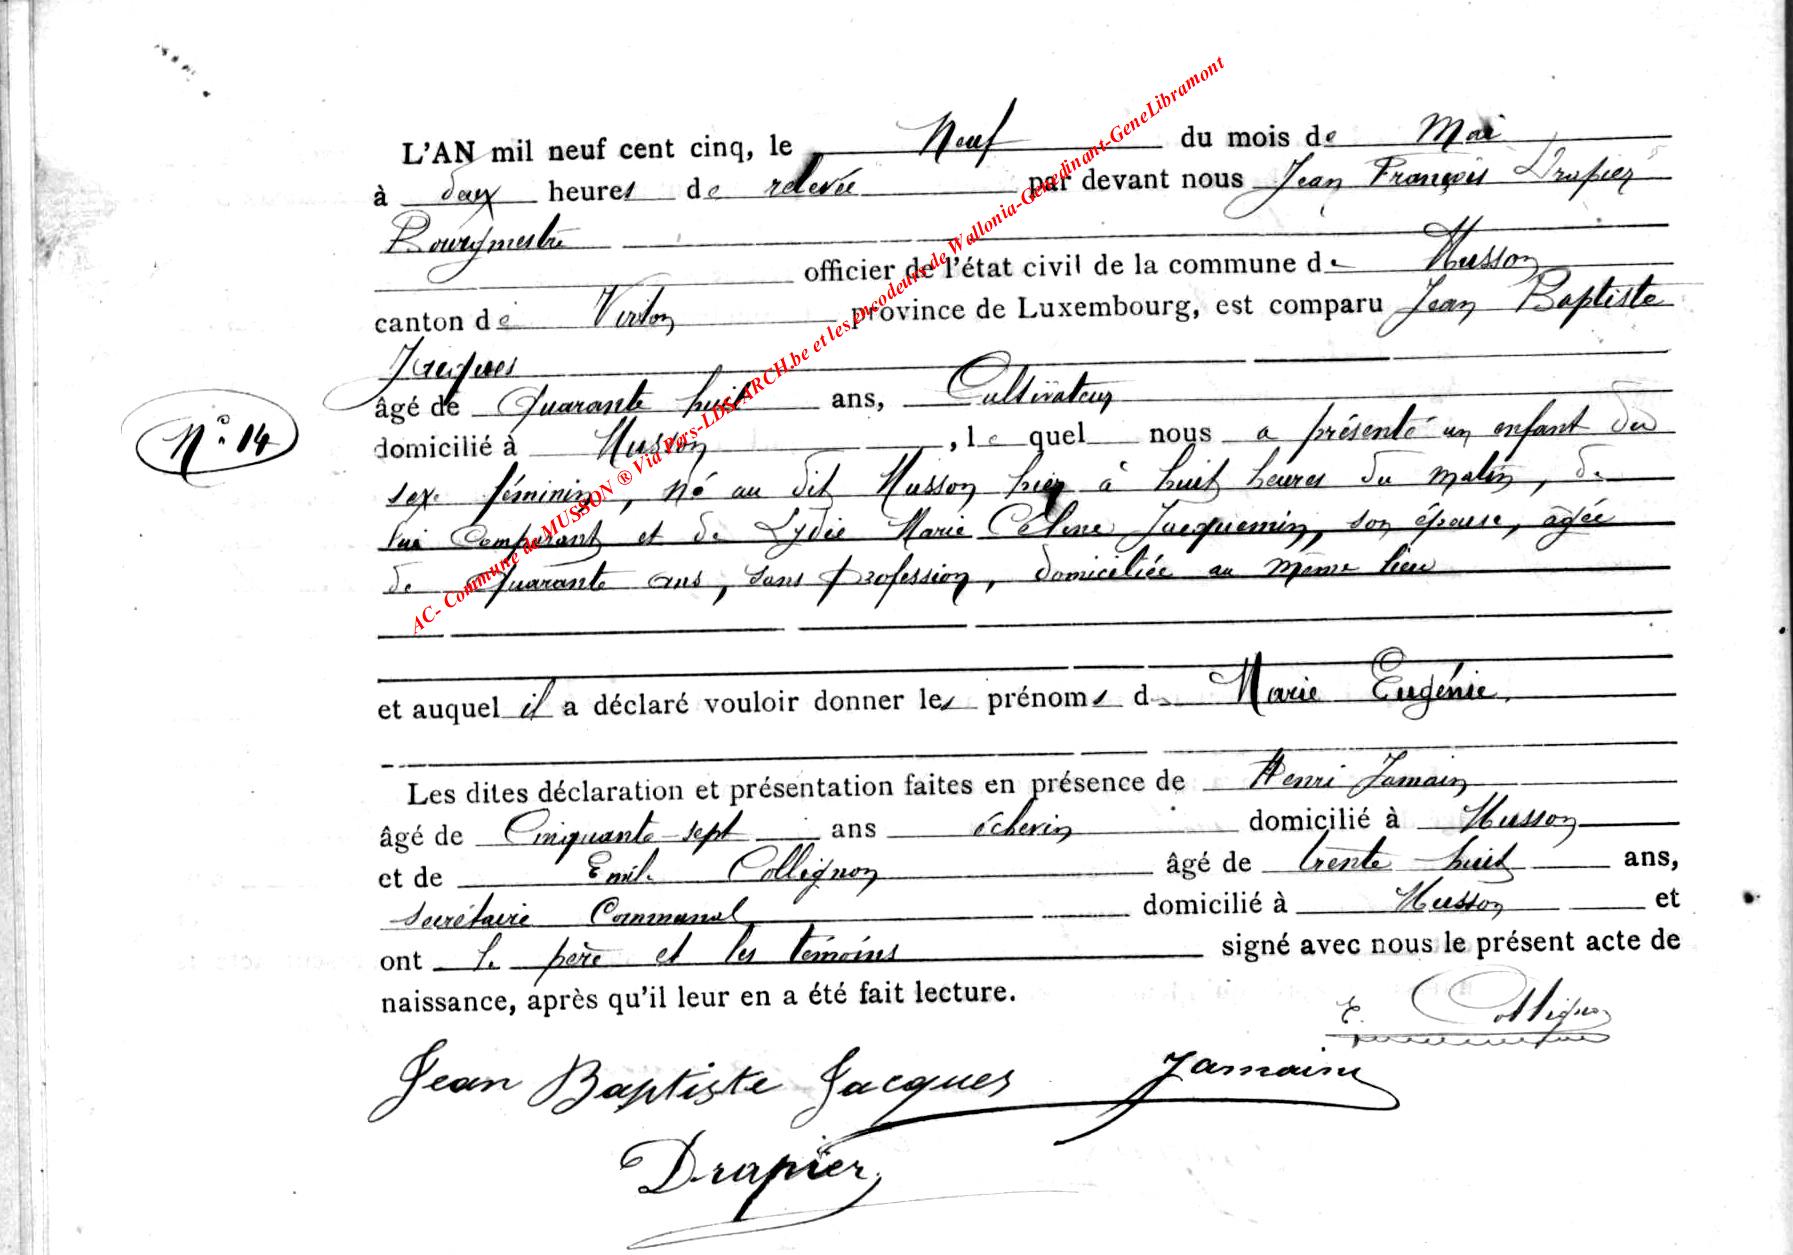 L'AN mil neuf cent cinq, le Neuf du mois de Mai
à deux heures de relevée par devant nous Jean François Drapier
Bourgmestre
officier de l'état civil de la commune de Musson
canton de Virton province de Luxembourg, est comparu Jean Baptiste
Jacques
âgé de Quarante huit ans, Cultivateur
N° 14
domicilié à Musson, le quel nous a présenté un enfant du
sexe féminin, né au dit Musson hier à huit heures du matin, de
lui Comparant et de Lydie Marie Céline Jacquemin, son épouse, âgée
de Quarante ans, sans profession, domiciliée au même lieu
et auquel il a déclaré vouloir donner les prénoms de Marie Eugénie.
Les dites déclaration et présentation faites en présence de Henri Jamain
âgé de Cinquante-sept ans échevin domicilié à Musson
et de Emile Collignon âgé de trente huit ans,
secrétaire Communal domicilié à Musson et
ont le père et les témoins signé avec nous le présent acte de
naissance, après qu'il leur en a été fait lecture.
E. Collignon
Jean Baptiste Jacques Jamain
Drapier
AC- Commune de MUSSON ® Via Pers-LDS-ARCH.be et les encodeurs de Wallonia-Genedinant-GeneLibramont